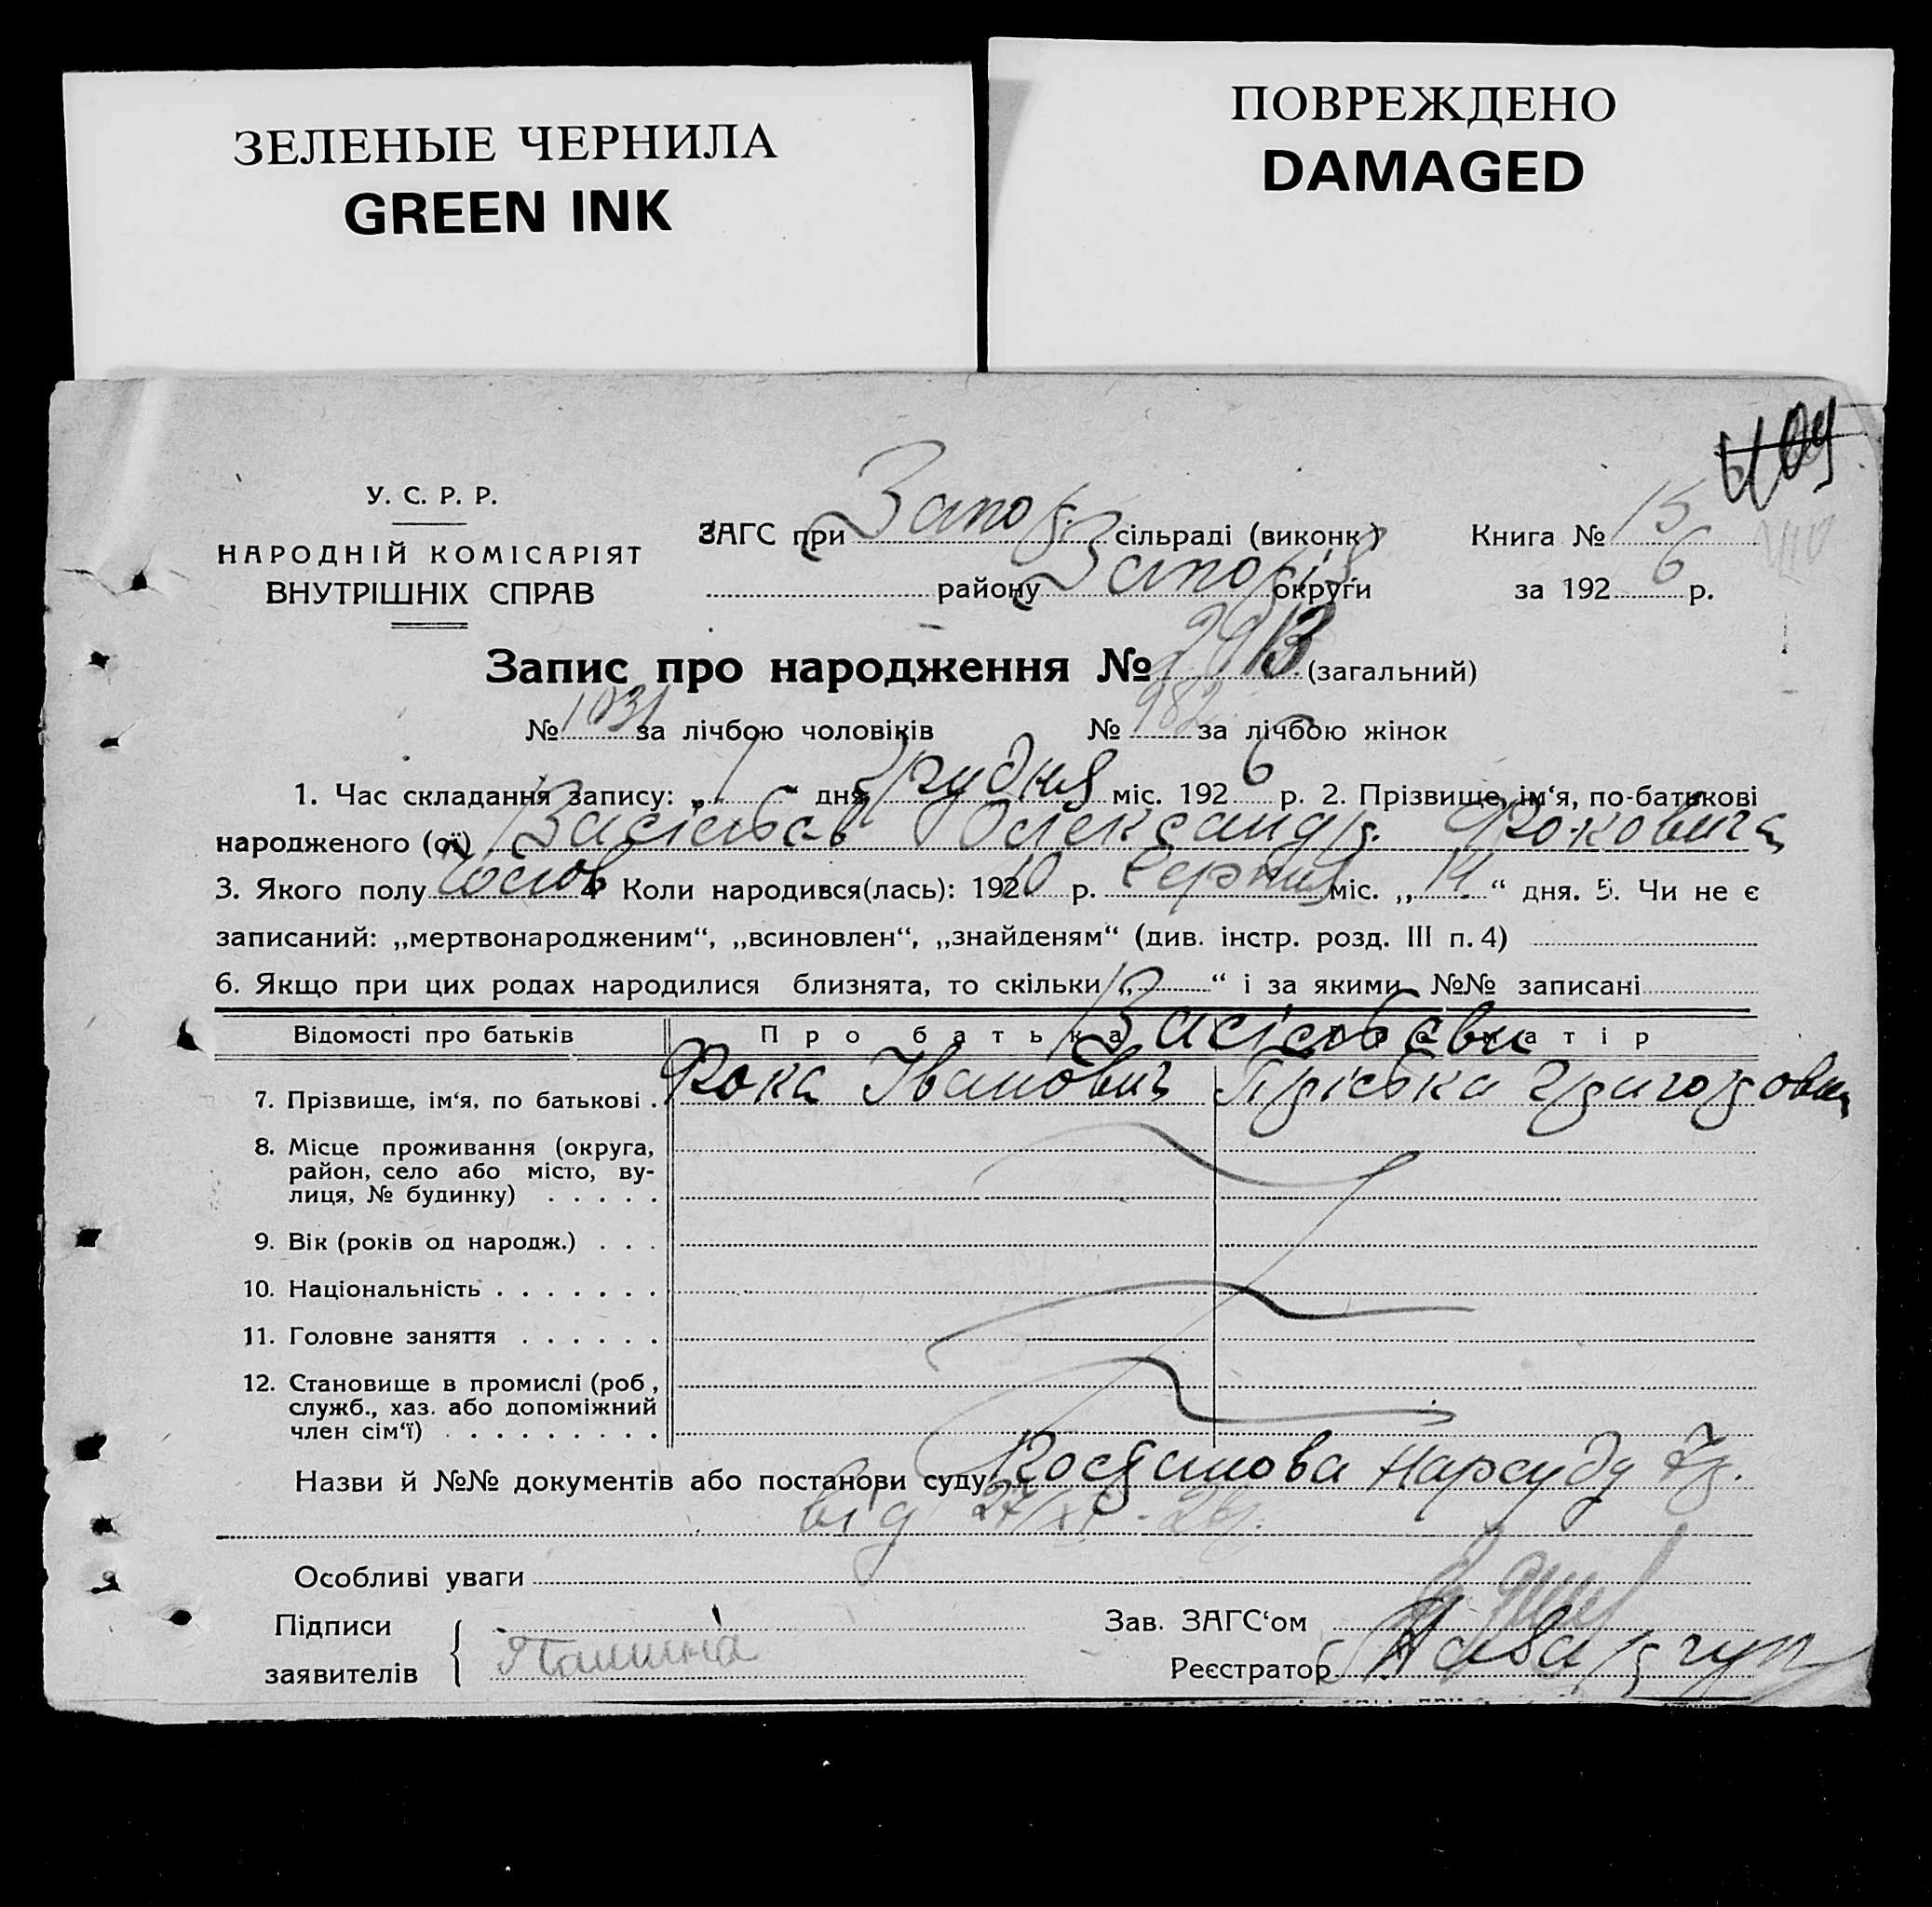 ЗЕЛЕНЫЕ ЧЕРНИЛА
GREEN INK
ПОВРЕЖДЕНО
DAMAGED
У. С. Р. Р.
НАРОДНІЙ КОМІСАРІЯТ
ВНУТРІШНІХ СПРАВ
ЗАГС при Запор. сільраді (виконк.) Книга № 15
району Запоріз округи за 192 6 р.
Запис про народження № 2913 (загальний)
№ 1031 за лічбою чоловіків № 982 за лічбою жінок
1. Час складання запису: „ 7 “ дня Грудня міс. 192 6 р. 2. Прізвище, ім‘я, по-батькові
народженого (ої) Васільєв Олександр. Фокович
3. Якого полу чолов 4 Коли народився(лась): 192 0 р. Серпня міс. „ 14 “ дня. 5. Чи не є
записаний: „мертвонародженим“, „всиновлен“, „знайденям“ (див. інстр. розд. III п. 4)
6. Якщо при цих родах народилися близнята, то скільки „ “ і за якими №№ записані
Відомості про батьків Про батька Про матір
Васільєви
7. Прізвище, ім‘я, по батькові . Фока Іванович Пріська Григоровна
8. Місце проживання (округа,
район, село або місто, ву-
лиця, № будинку) . . . . .
9. Вік (років од народж.) . . .
10. Національність . . . . . . .
11. Головне заняття . . . . . .
12. Становище в промислі (роб.,
служб., хаз. або допоміжний
член сім‘ї) . . . . . . . . .
Назви й №№ документів або постанови суду Постанова Нарсуду
від 27/XI-26р.
Особливі уваги
Підписи Зав. ЗАГС‘ом
заявителів Реєстратор